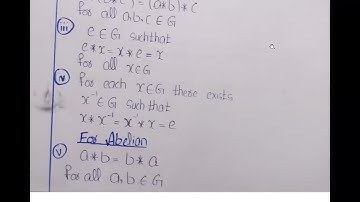 (b * c) = (a * b) * c
for all a, b, c ∈ G
iii e ∈ G such that
e * x = x * e = x
for all x ∈ G
iv For each x ∈ G there exists
x⁻¹ ∈ G such that
x * x⁻¹ = x⁻¹ * x = e
For Abelian
v a * b = b * a
for all a, b ∈ G